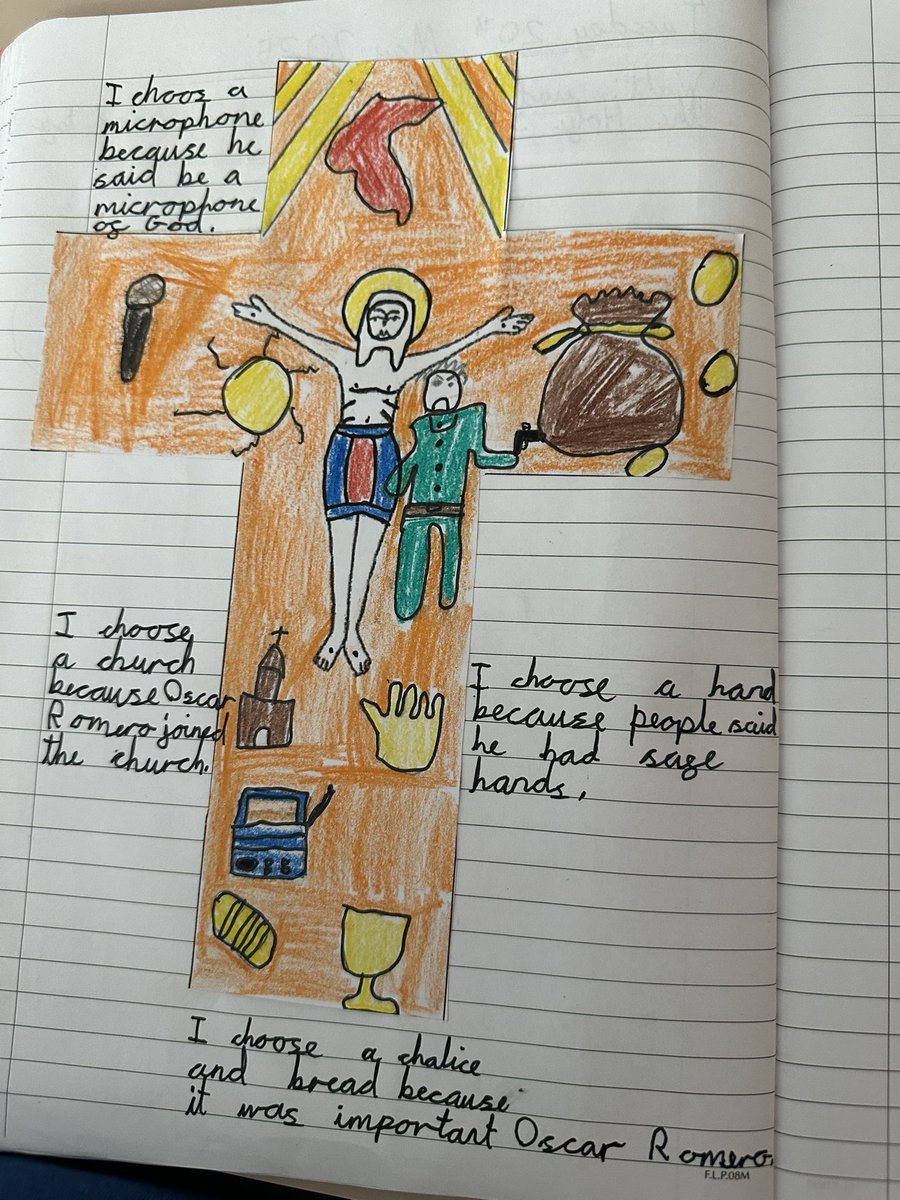 I choos a
microphone
because he
said be a
microphone
of God.
I choose
a church
because Oscar
Romero joined
the church.
I choose a hand
because people said
he had safe
hands.
I choose a chalice
and bread because
it was important Oscar Romero.
F.L.P.08M